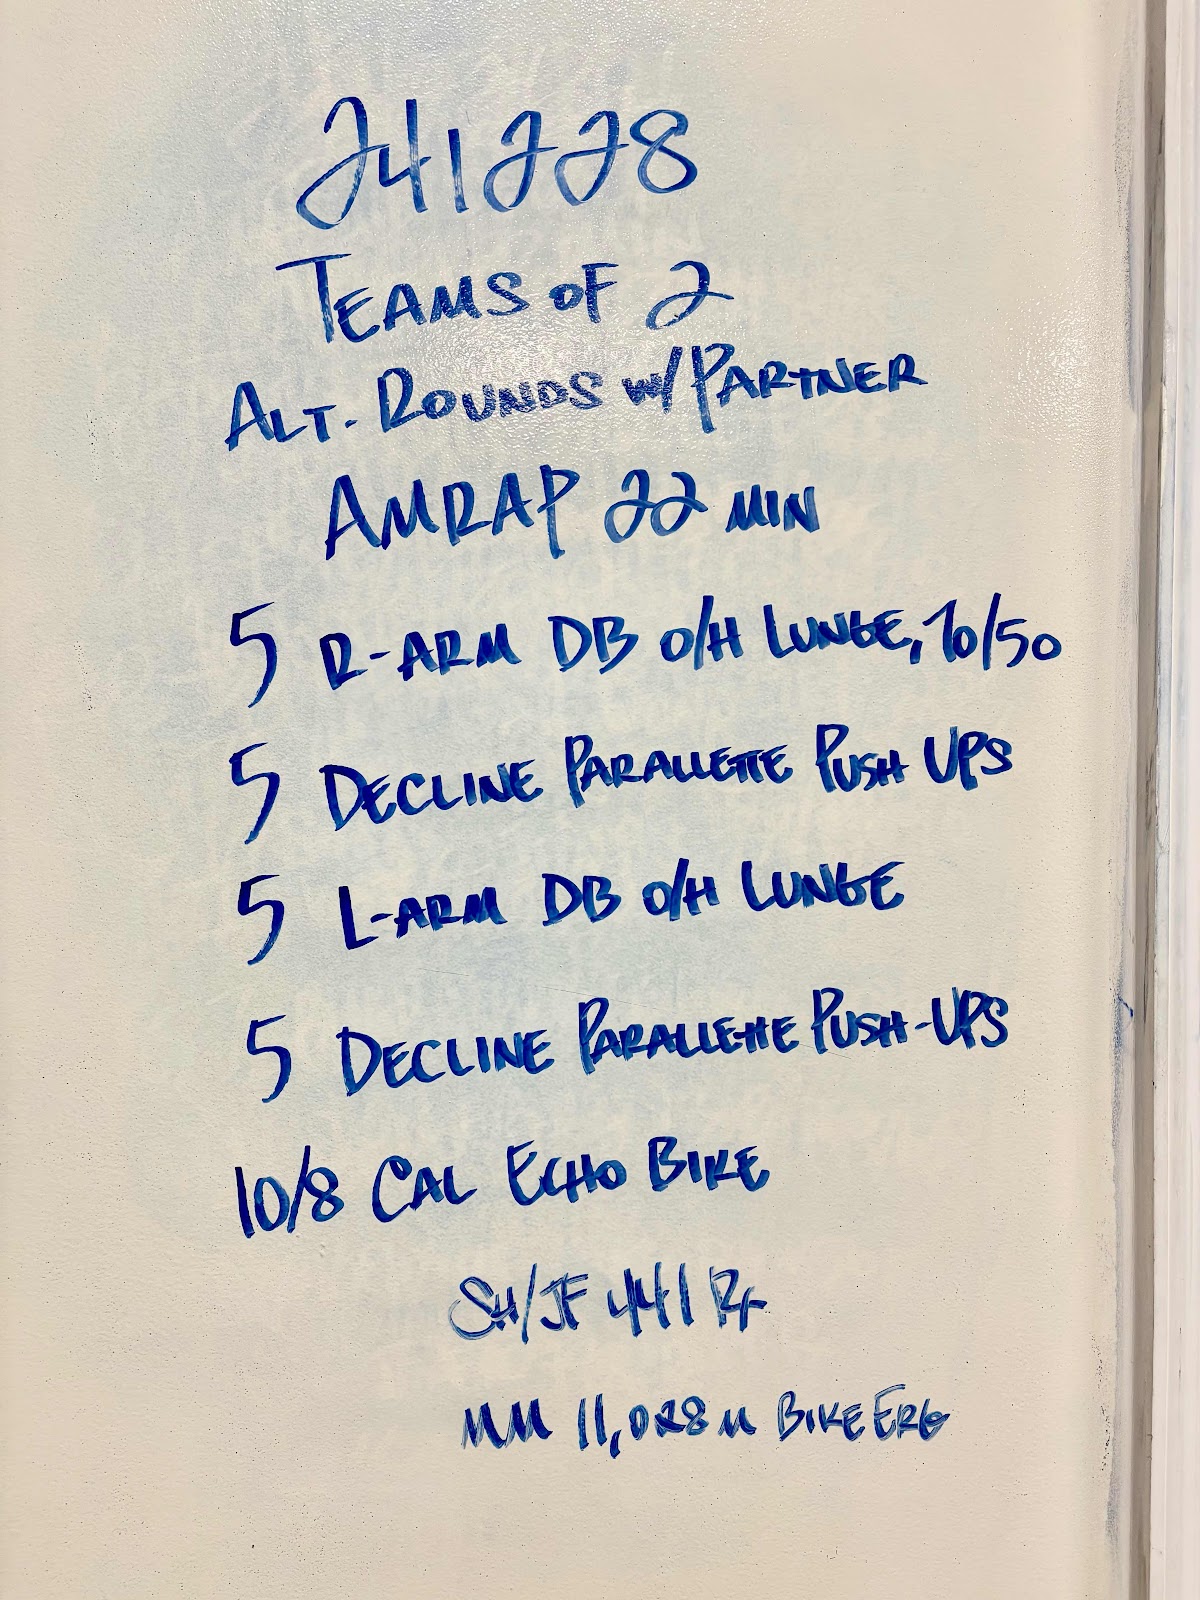 241228
TEAMS OF 2
ALT. ROUNDS W/ PARTNER
AMRAP 22 MIN
5 R-ARM DB O/H LUNGE, 70/50
5 DECLINE PARALLETTE PUSH UPS
5 L-ARM DB O/H LUNGE
5 DECLINE PARALLETTE PUSH-UPS
10/8 CAL ECHO BIKE
SH/JF 441 Rx
MM 11,028 M BIKE ERG